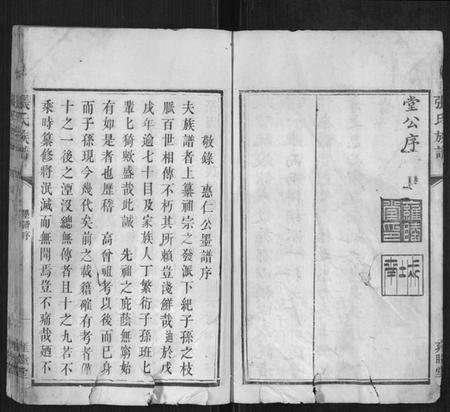 張氏族譜
堂公序
敬錄　惠仁公墨譜序
夫族譜者上纂祖宗之發派下紀子孫之枝
脈百世相傳不朽其所賴豈淺鮮哉適於戊
戌年逾七十目及家族人丁繁衍子孫班七
輩匕猗歟盛哉此誠　先祖之庇蔭無窮始
有如是者也歷稽　高曾祖考以後而已身
而子孫現今幾代矣前之載籍確有考者僅
十之一後之湮沒總無傳者且十之九若不
乘時纂修將泯滅而無聞焉豈不痛哉迺不
張氏族譜
墨譜序